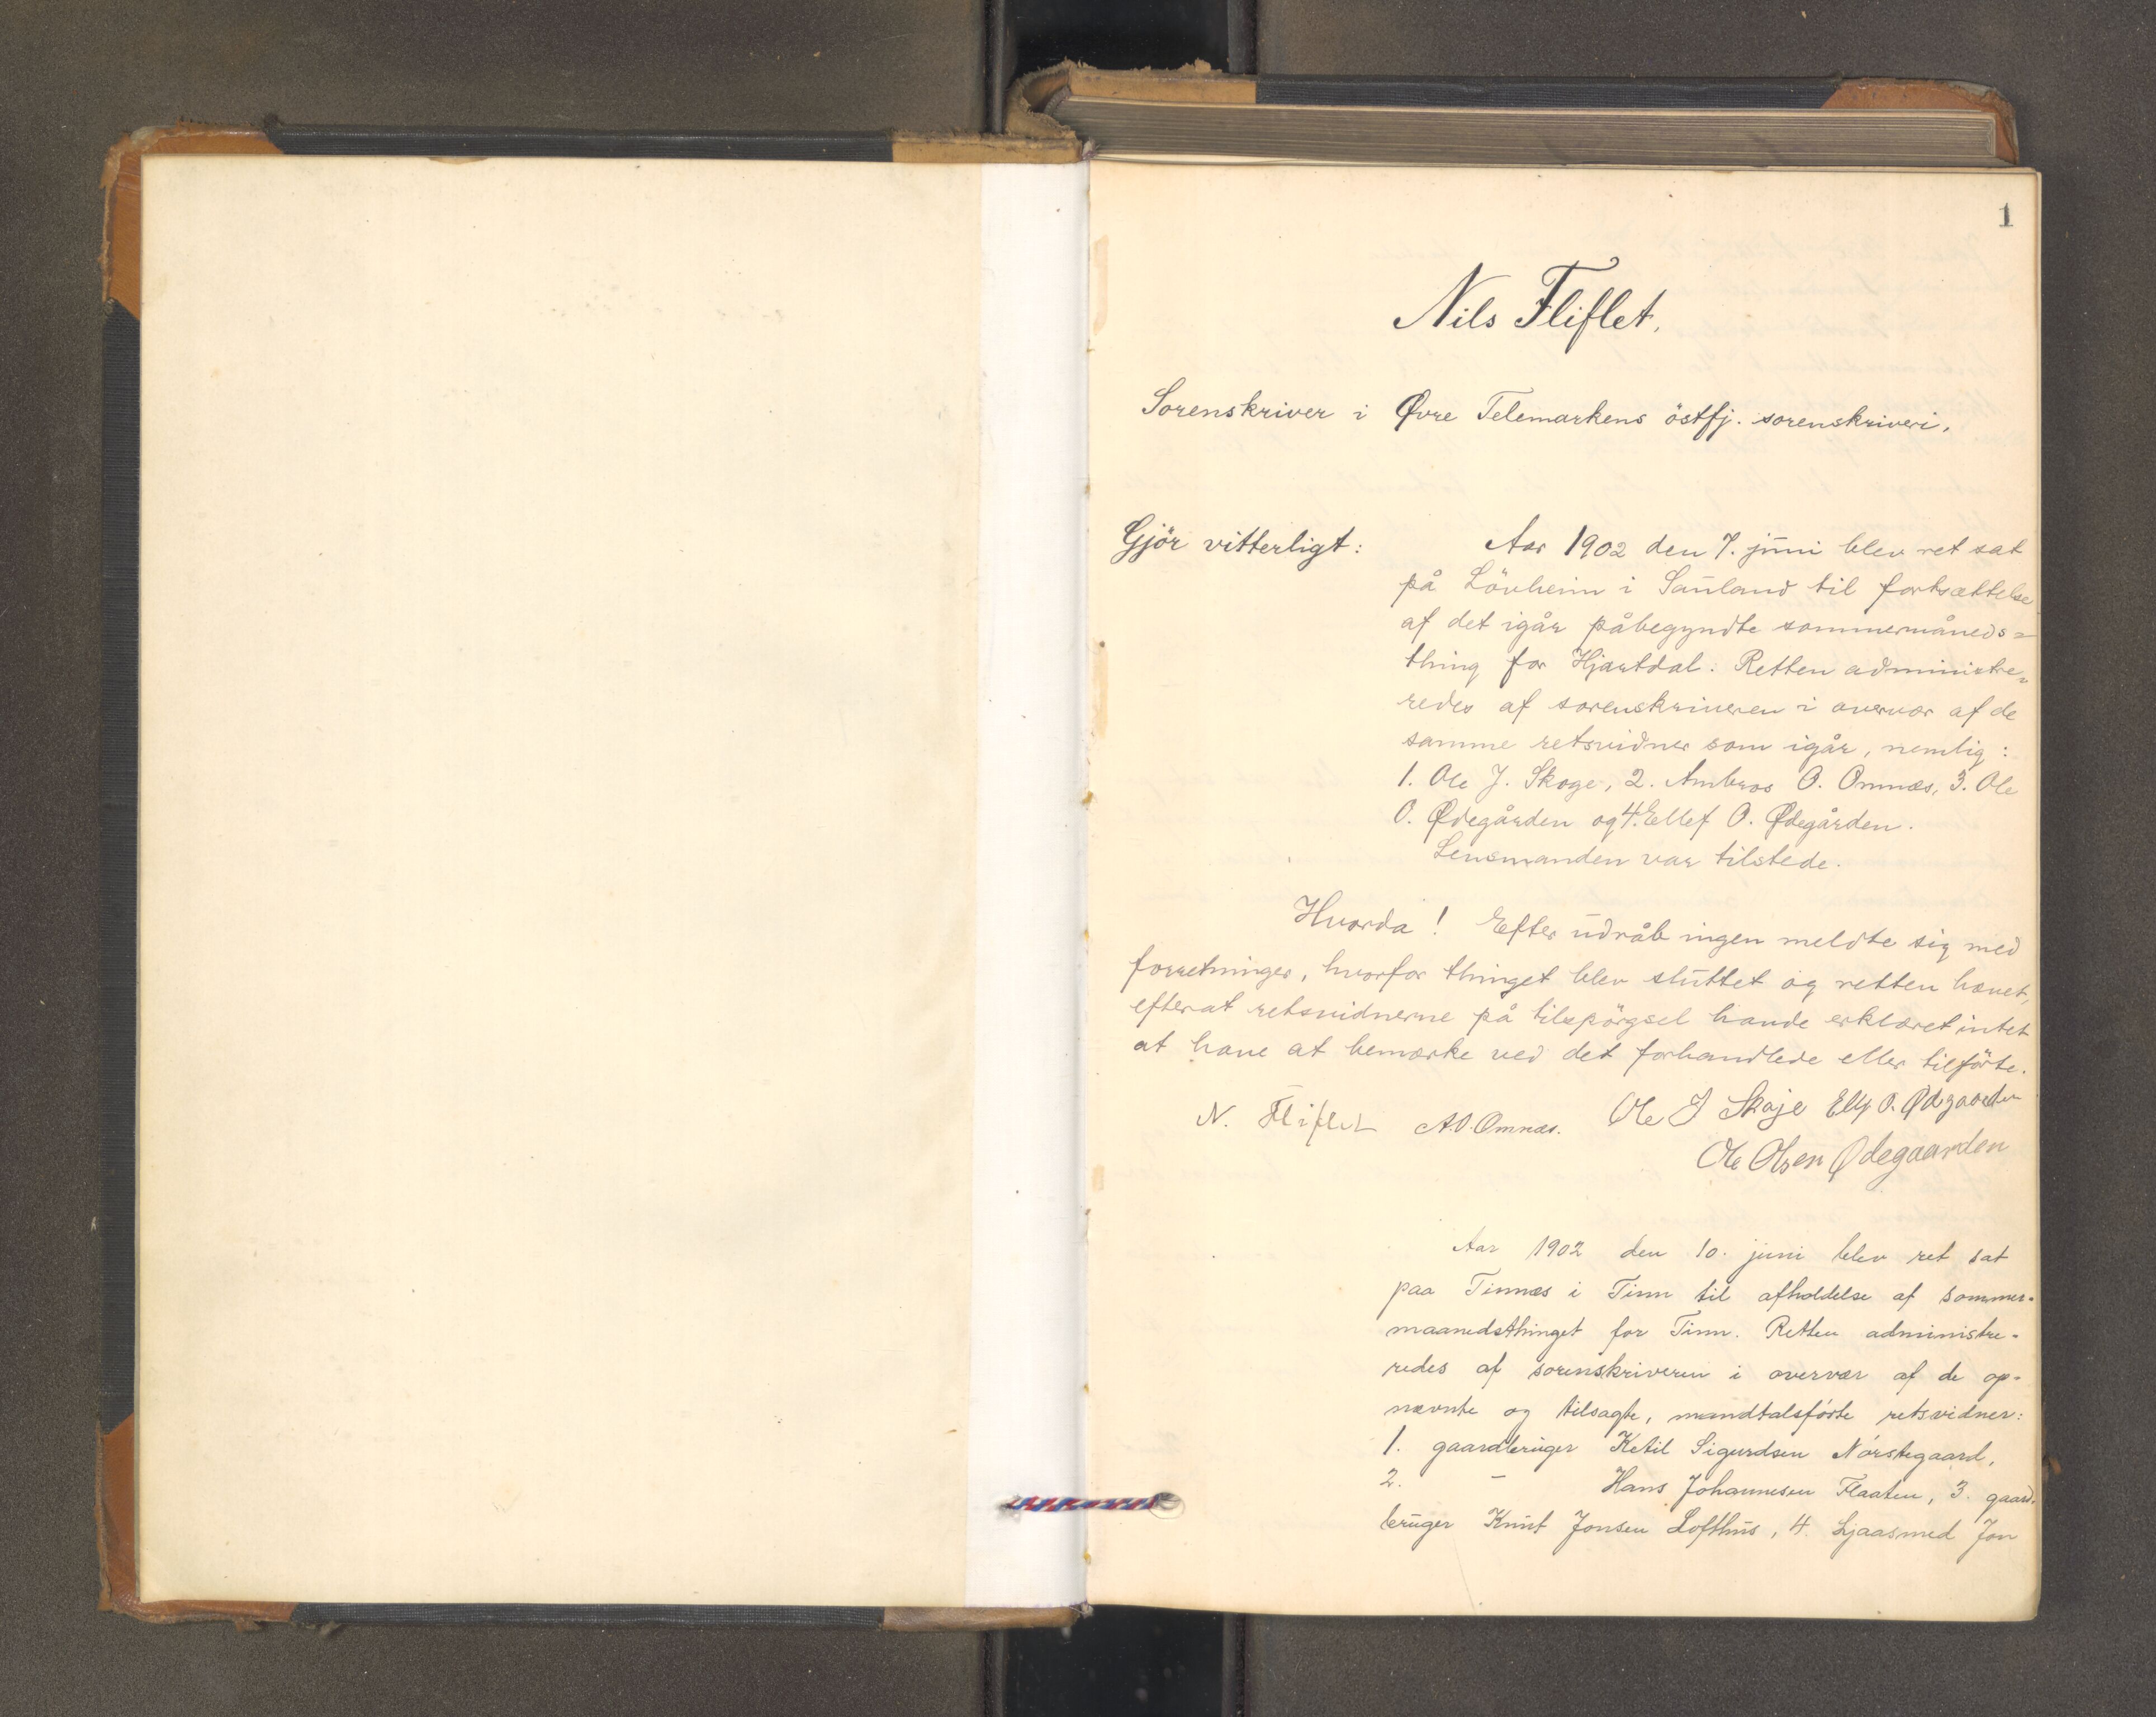 1
Nils Fliflet.
Sorenskriver i Øvre Telemarkens östfj. sorenskriveri.
Gjör vitterligt: Aar 1902 den 7. jūni blev ret sat
på Lövheim i Saūland til fortsættelse
af det igår påbegyndte sommermåneds=
thing for Hjartdal. Retten administre=
redes af sorenskriveren i overvær af de
samme retsvidner som igår, nemlig:
1. Ole J. Skoge, 2. Ambros O. Omnæs, 3. Ole
O. Ødegården og 4. Ellef O. Ødegården.
Lensmanden var tilstede.
Hvorda! Efter ūdråb ingen meldte sig med
forretninger, hvorfor thinget blev slūttet og retten hævet,
efterat retsvidnerne på tilspörgsel havde erklæret intet
at have at bemærke ved det forhandlede eller tilförte.
N. Fliflet A.O. Omnæs. Ole J Skoje Ellef O. Ødegaarden
Ole Olsen Ødegaarden
Aar 1902 den 10. juni blev ret sat
paa Tinnæs i Tinn til afholdelse af sommer-
maanedsthinget for Tinn. Retten administre-
redes af sorenskriveren i overvær af de op-
nævnte og tilsagte, mandtalsförte retsvidner:
1. gaardbrūger Ketil Sigurdsen Nörstegaard,
2. – Hans Johannesen Flaaten, 3. gaard-
brūger Knūt Jonsen Lofthūs, 4. Ljaasmed Jon